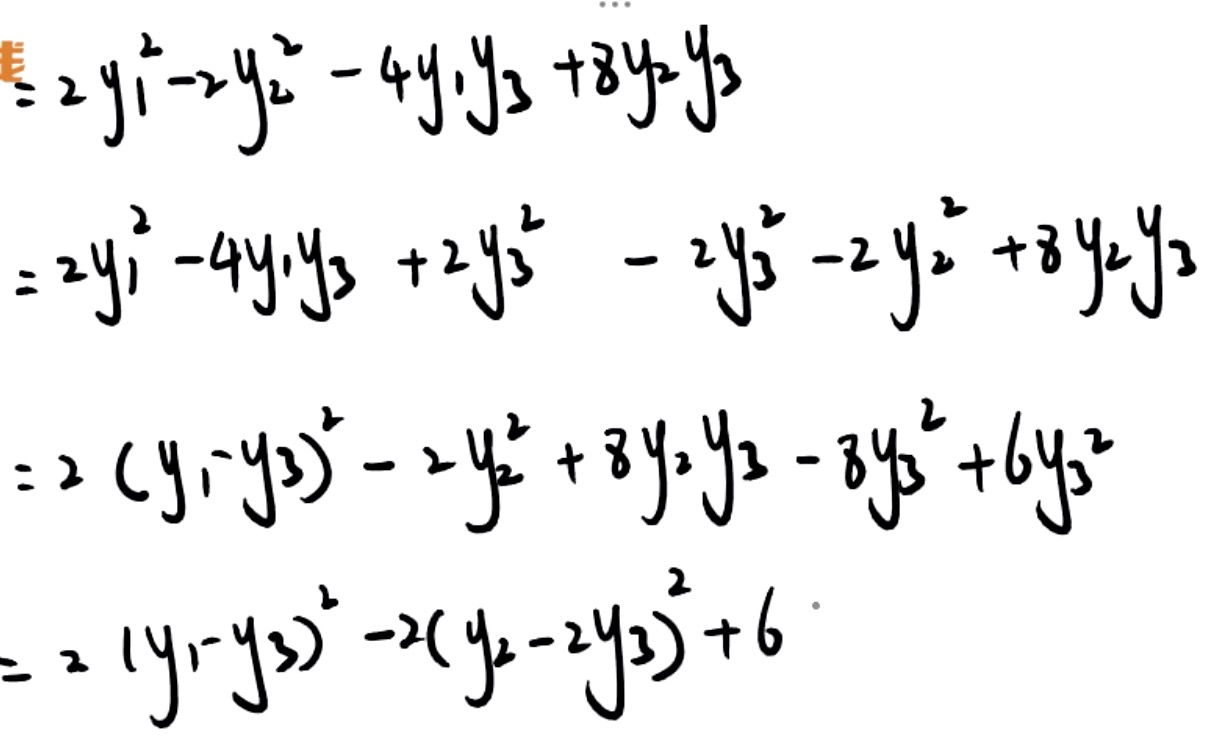 = 2y₁² - 2y₂² - 4y₁y₃ + 8y₂y₃
= 2y₁² - 4y₁y₃ + 2y₃² - 2y₃² - 2y₂² + 8y₂y₃
= 2(y₁ - y₃)² - 2y₂² + 8y₂y₃ - 8y₃² + 6y₃²
= 2(y₁ - y₃)² - 2(y₂ - 2y₃)² + 6